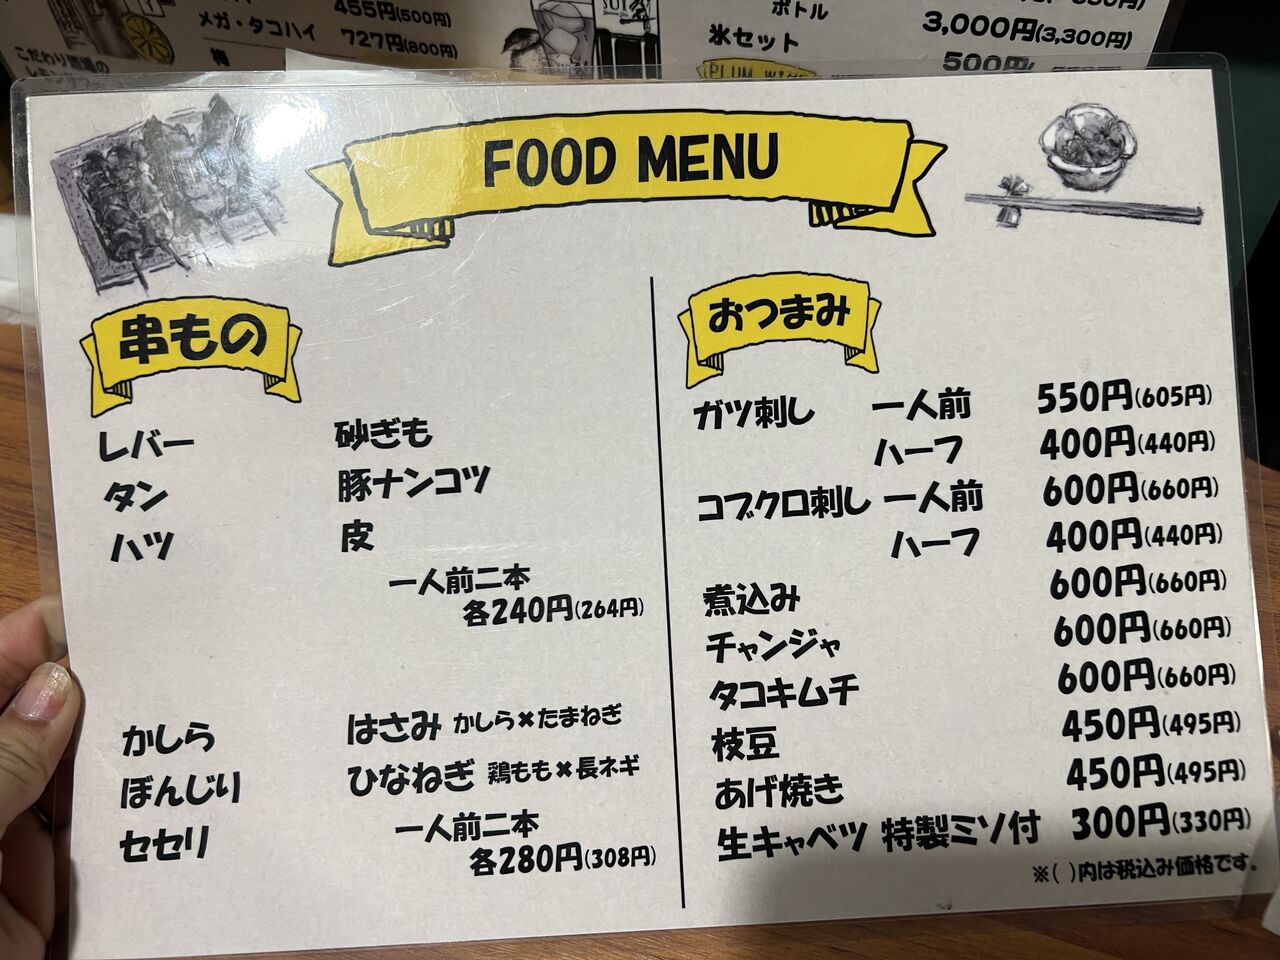 455円(500円)
メガ・タコハイ 727円(800円)
梅
こだわり酒場の
ボトル 3,000円(3,300円)
氷セット 500円
PLUM WINE
FOOD MENU
串もの
レバー 砂ぎも
タン 豚ナンコツ
ハツ 皮
一人前二本
各240円(264円)
かしら はさみ かしら×たまねぎ
ぼんじり ひなねぎ 鶏もも×長ネギ
セセリ 一人前二本
各280円(308円)
おつまみ
ガツ刺し 一人前 550円(605円)
ハーフ 400円(440円)
コブクロ刺し 一人前 600円(660円)
ハーフ 400円(440円)
煮込み 600円(660円)
チャンジャ 600円(660円)
タコキムチ 600円(660円)
枝豆 450円(495円)
あげ焼き 450円(495円)
生キャベツ 特製ミソ付 300円(330円)
※( )内は税込み価格です。